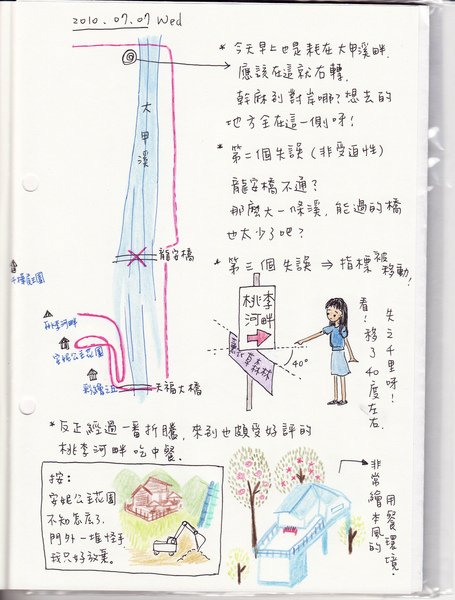 2010.07.07 Wed
*今天早上也是耗在大甲溪畔.
應該在這就右轉,
幹麻到對岸哪?想去的
地方全在這一側呀!
*第二個失誤(非受迫性)
龍安橋不通?
那麼大一條溪,能過的橋
也太少了吧?
*第三個失誤⇒指標被移動!
大甲溪
龍安橋
桃李河畔
安妮公主花園
天福大橋
桃李
河畔
森林
40°
看!移了40度左右.
失之千里呀!
*反正經過一番折騰,來到也頗受好評的
桃李河畔吃中餐.
按:
安妮公主花園
不知怎麼了.
門外一堆怪手.
我只好放棄。
用餐環境.
非常繪本風的